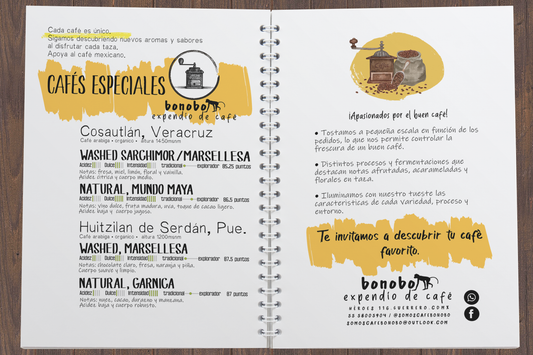 Cada café es único,
Sigamos descubriendo nuevos aromas y sabores
al disfrutar cada taza,
Apoya al café mexicano.
CAFÉS ESPECIALES
bonobo
expendio de café
Cosautlán, Veracruz
Café arabiga • organico • altura 1450msnm
WASHED SARCHIMOR/MARSELLESA
Acidez Dulce Intensidad tradicional explorador 85.25 puntos
Notas: fresa, miel, limón, floral y vainilla.
Acidez cítrica y cuerpo medio.
NATURAL, MUNDO MAYA
Acidez Dulce Intensidad tradicional explorador 86.5 puntos
Notas: vino dulce, fruta madura, uva, toques de cacao ligero.
Acidez baja y cuerpo jugoso.
Huitzilan de Serdán, Pue.
Café arabiga • organico • altura 1200msnm
WASHED, MARSELLESA
Acidez Dulce Intensidad tradicional explorador 87.5 puntos
Notas: chocolate claro, fresa, naranja y piña.
Cuerpo suave y limpio.
NATURAL, GARNICA
Acidez Dulce Intensidad tradicional explorador 87 puntos
Notas: nuez, cacao, durazno y manzana.
Acidez baja y cuerpo robusto.
¡Apasionados por el buen café!
• Tostamos a pequeña escala en función de los
pedidos, lo que nos permite controlar la
frescura de un buen café.
• Distintos procesos y fermentaciones que
destacan notas afrutadas, acarameladas y
florales en taza.
• Iluminamos con nuestro tueste las
características de cada variedad, proceso y
entorno.
Te invitamos a descubrir tu café
favorito.
bonobo
expendio de café
HÉROES 110 GUERRERO CDMX
@SOMOSCAFEBONOBO
SOMOSCAFEBONOBO@OUTLOOK.COM